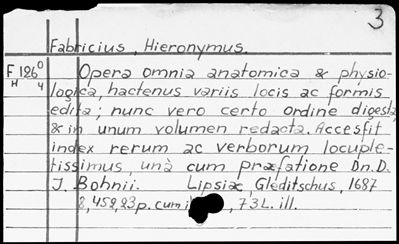 3
Fabricius, Hieronymus.
F 126⁰ Opera omnia anatomica & physio-
H 4 logica, hactenus variis locis ac formis
edita; nunc vero certo ordine digesta,
& in unum volumen redacta. Accessit
index rerum ac verborum locuple-
tissimus, unà cum præfatione Dn. D.
J. Bohnii. Lipsiae, Gleditschus, 1687
, 73 L. ill.